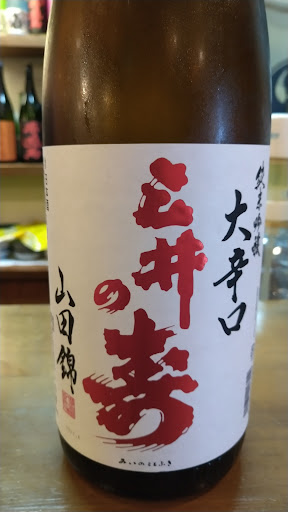 純米吟醸
大辛口
三井の寿
山田錦
みいのことぶき